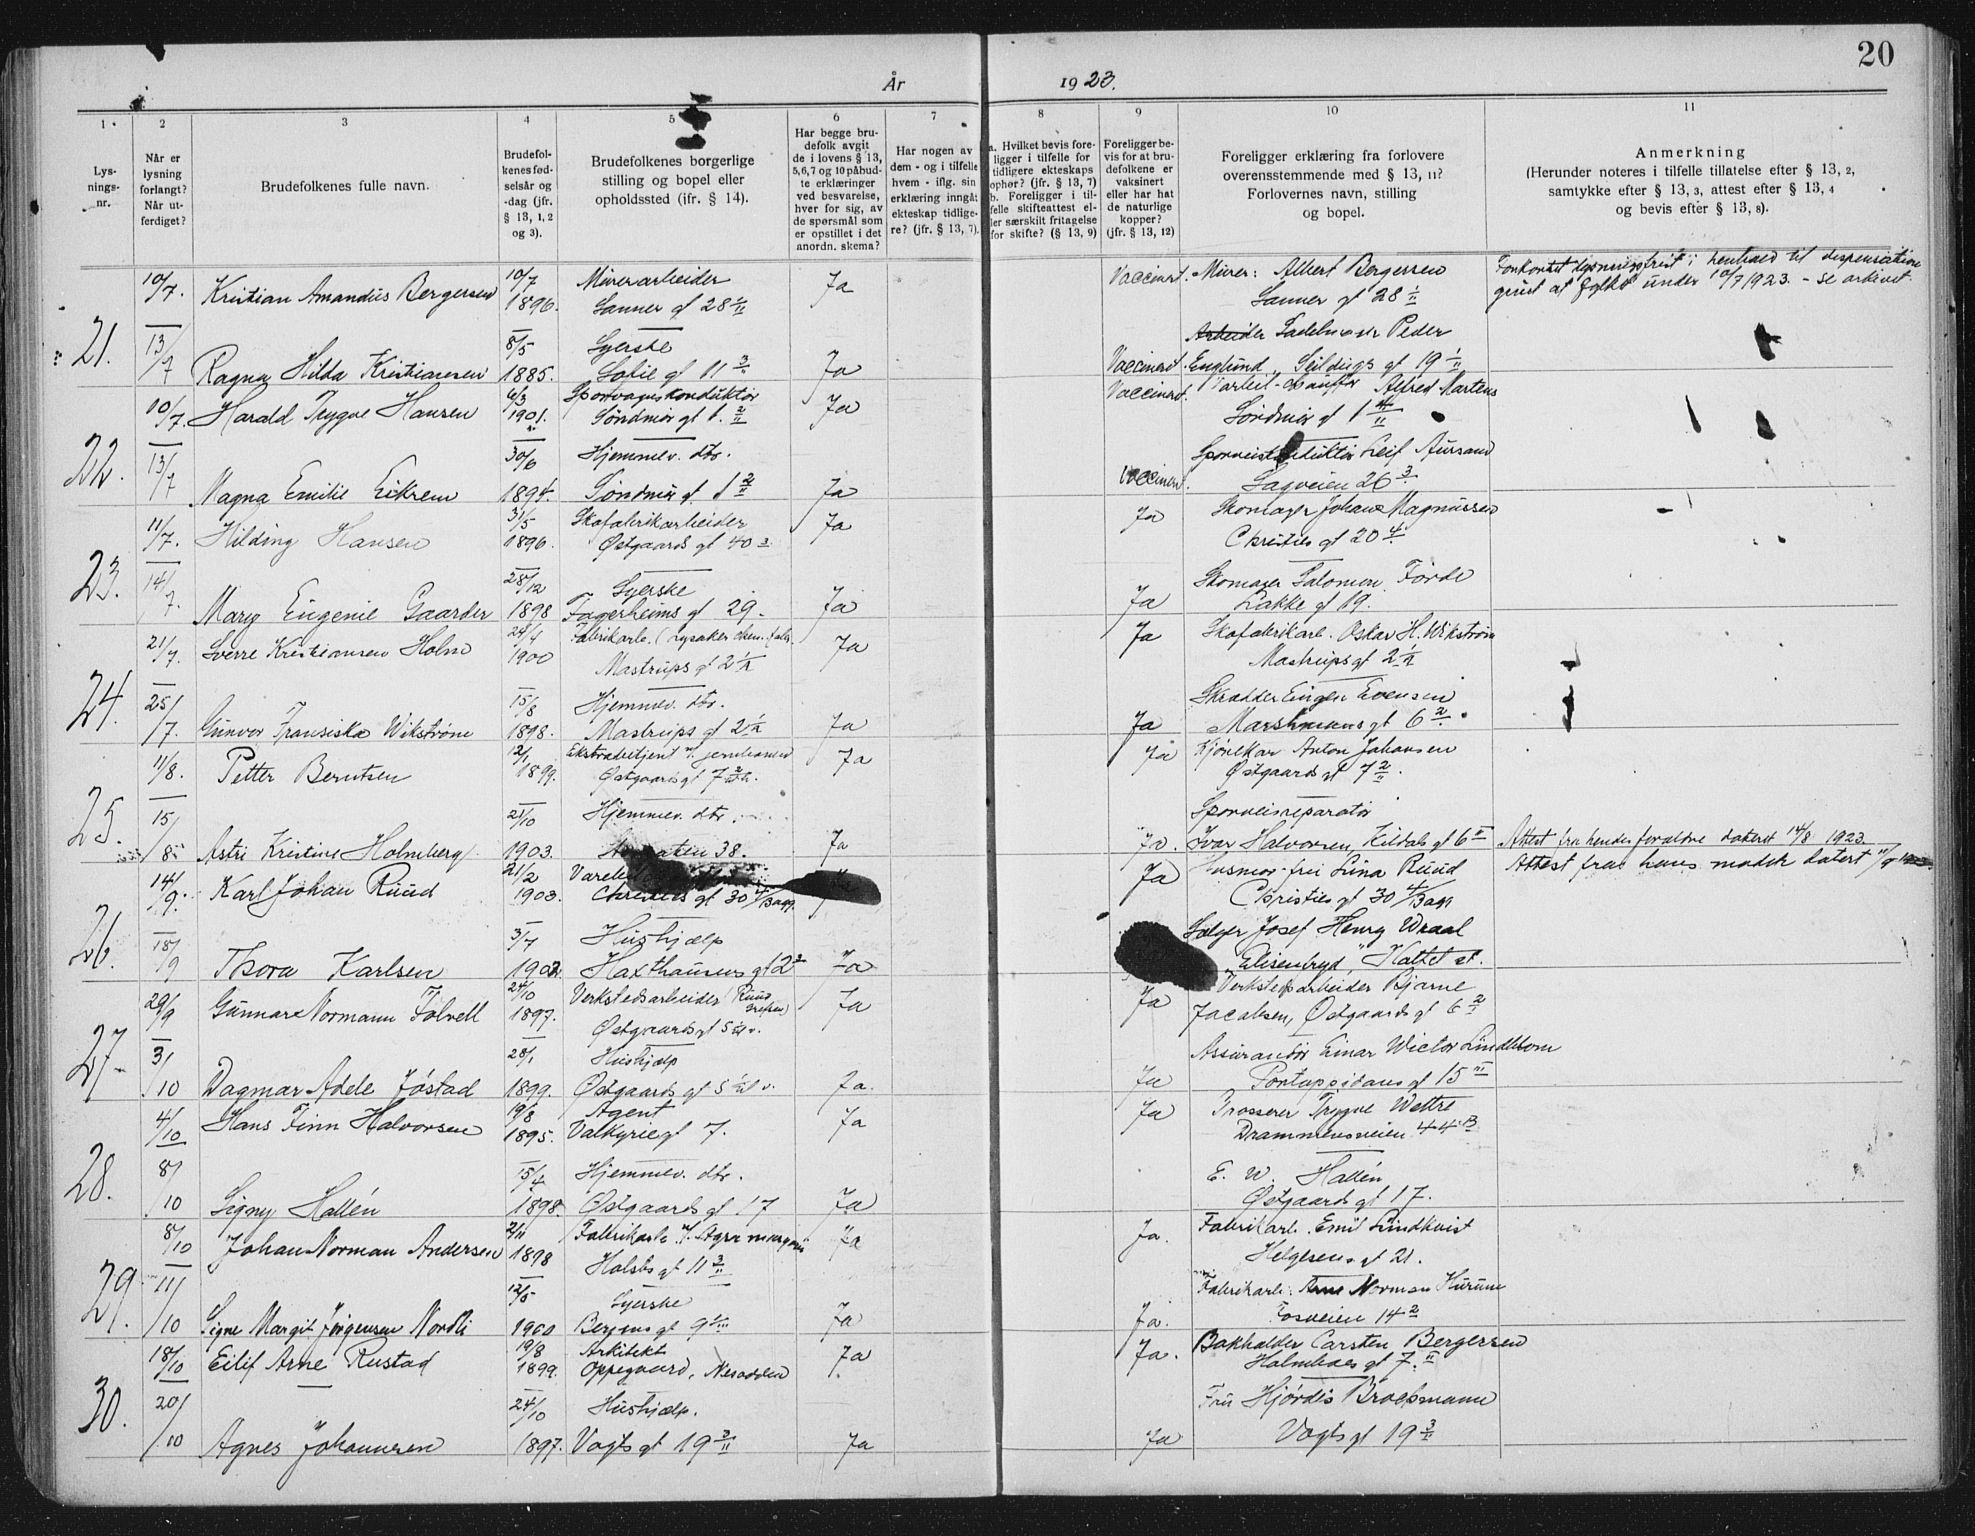 20
År 1923.
1 2 3 4 5 6 7 8 9 10 11
Lys-
nings-
nr.
Når er
lysning
forlangt?
Når ut-
ferdiget?
Brudefolkenes fulle navn.
Brudefol-
kenes fød-
selsår og
-dag (jfr.
§ 13, 1, 2
og 3).
Brudefolkenes borgerlige
stilling og bopel eller
opholdssted (ifr. § 14).
Har begge bru-
defolk avgit
de i lovens § 13,
5,6,7 og 10 påbud-
te erklæringer
ved besvarelse,
hver for sig, av
de spørsmål som
er opstillet i det
anordn. skema?
Har nogen av
dem - og i tilfelle
hvem - iflg. sin
erklæring inngåt
ekteskap tidlige-
re? (jfr. § 13, 7).
a. Hvilket bevis fore-
ligger i tilfelle for
tidligere ekteskaps
ophør? (jfr. § 13, 7)
b. Foreligger i til-
felle skifteattest el-
ler særskilt fritagelse
for skifte? (§ 13, 9)
Foreligger be-
vis for at bru-
defolkene er
vaksinert
eller har hat
de naturlige
kopper?
(jfr. § 13, 12)
Foreligger erklæring fra forlovere
overensstemmende med § 13, 11?
Forlovernes navn, stilling
og bopel.
Anmerkning
(Herunder noteres i tilfelle tillatelse efter § 13, 2,
samtykke efter § 13, 3, attest efter § 13, 4
og bevis efter § 13, 8).
21.
10/7. Kristian Amandus Bergersen 10/7 1896. Murerarbeider Ja Vaccinert. Murer: Albert Bergersen
Sanner gt 28 1/11 Sanner gt 28 1/11
Forkortet lysningsfrist i henhold til dispensation
under 10/7 1923. - se arkivet.
13/7 Ragna Hilda Kristiansen 8/5 1885. Syerske Ja Vaccinert. Arbeider Sadelmaker Peder
Sofie gt 11 3/11 Englund, Seildugs gt 19 1/11
22.
10/7. Harald Trygve Hansen 6/3 1901. Sporvagnskonduktør Ja Vaccinert. Alfred Martens
Søndmør gt 1. 2/11 Søndmør gt 1
13/7 Magna Emilie Eikrem 30/6 1894. Hjemmev. dtr. Ja Vaccinert. Leif Aursand
Søndmør gt 1 2/11 Sagveien 26 3
23.
11/7. Hilding Hansen 31/5 1896. Skofabrikarbeider Ja Ja Skomager Johan Magnussen
Østgaards gt 40 Christies gt 20 4.
14/7. Mary Eugenie Gaarder 28/12 1898 Syerske Ja Ja Skomager Salomon Førde
Fagerheims gt 29. Lakke gt 19.
24.
21/7. Sverre Kristiansen Holm 24/4 1900 Fabrikarb. (Lysaker chem. fabr. Ja Ja Skofabrikarb. Oskar H. Wikstrøm
Mastrups gt 2 Mastrups gt 2
25/7. Gunvor Fransiska Wikstrøm 15/8 1898. Hjemmev. dtr. Ja Ja Skrædder Eugen Evensen
Mastrups gt 2 Marstrands gt 6 2.
25.
11/8. Petter Berntsen 12/1 1899. Ekstrabetjent v. jernbanen Ja Ja Kjørekar Anton Johansen
Østgaards gt 7 Østgaards gt 7 2/11.
15/8 Astri Kristine Holmberg 21/10 1903. Hjemmev. dtr. Ja Ja. Sporveisreparatør
38. Ivar Halvorsen, Kildals gt 6 II
Attest fra hendes forældre datert 14/8 1923.
26.
14/9. Karl Johan Ruud 21/2 1903. Ja Husmor-frú Lina Ruud
Christies gt 30 4/Bagg. Christies gt 30 4/Bagg
Attest fra hans mor datert
18/9 Thora Karlsen 3/7 1902. Hushjælp Ja Selger Josef Henry Wraal
Haxthausens gt 2 2 Elisenbryd, Koltet st.
27-
29/9 Gunnar Normann Folvell 24/10 1897. Verkstedsarbeider (Ruud Grefsen) Ja Ja Verkstedsarbeider Bjarne
Østgaards gt 5 Jacobsen, Østgaards gt 6 2
3/10 Dagmar Adele Jøstad 28/1 1899. Hushjælp Ja. Ja Assurandør Einar Wictor Lindblom
Østgaards gt 5 Pontoppidans gt 15 III
28.
4/10 Hans Finn Halvorsen 19/8 1895. Agent Ja Ja Grosserer Trygve Wettre
Valkyrie gt 7. Drammensveien 44 B
8/10 Signy Hallén 15/4 1898. Hjemmev. dtr. Ja E. W. Hallén
Østgaards gt 17 Østgaards gt 17.
29.
8/10 Johan Norman Andersen 2/11 1898 Fabrikarb. v. Agra margarin Ja Ja. Fabrikarb. Emil Lundkvist
Holsts gt 11 3/11 Helgesens gt 21.
11/10 Signe Margit Jørgensen Nordli 12/5 1900 Syerske Ja Ja. Fabrikarb. Arne Norman Hurum
Bergens gt 9 Fosveien 14 2
30.
18/10 Eilif Arne Rustad 19/8 1899. Arkitekt Ja. Ja. Bokholder Carsten Bergersen
Oppegaard, Nesodden Holmboes gt 7. II
20/10 Agnes Johannsen 24/10 1897. Hushjælp. Ja Ja Frú Hjørdis Brochmann
Vogts gt 19 3/11 Vogts gt 19 3/11